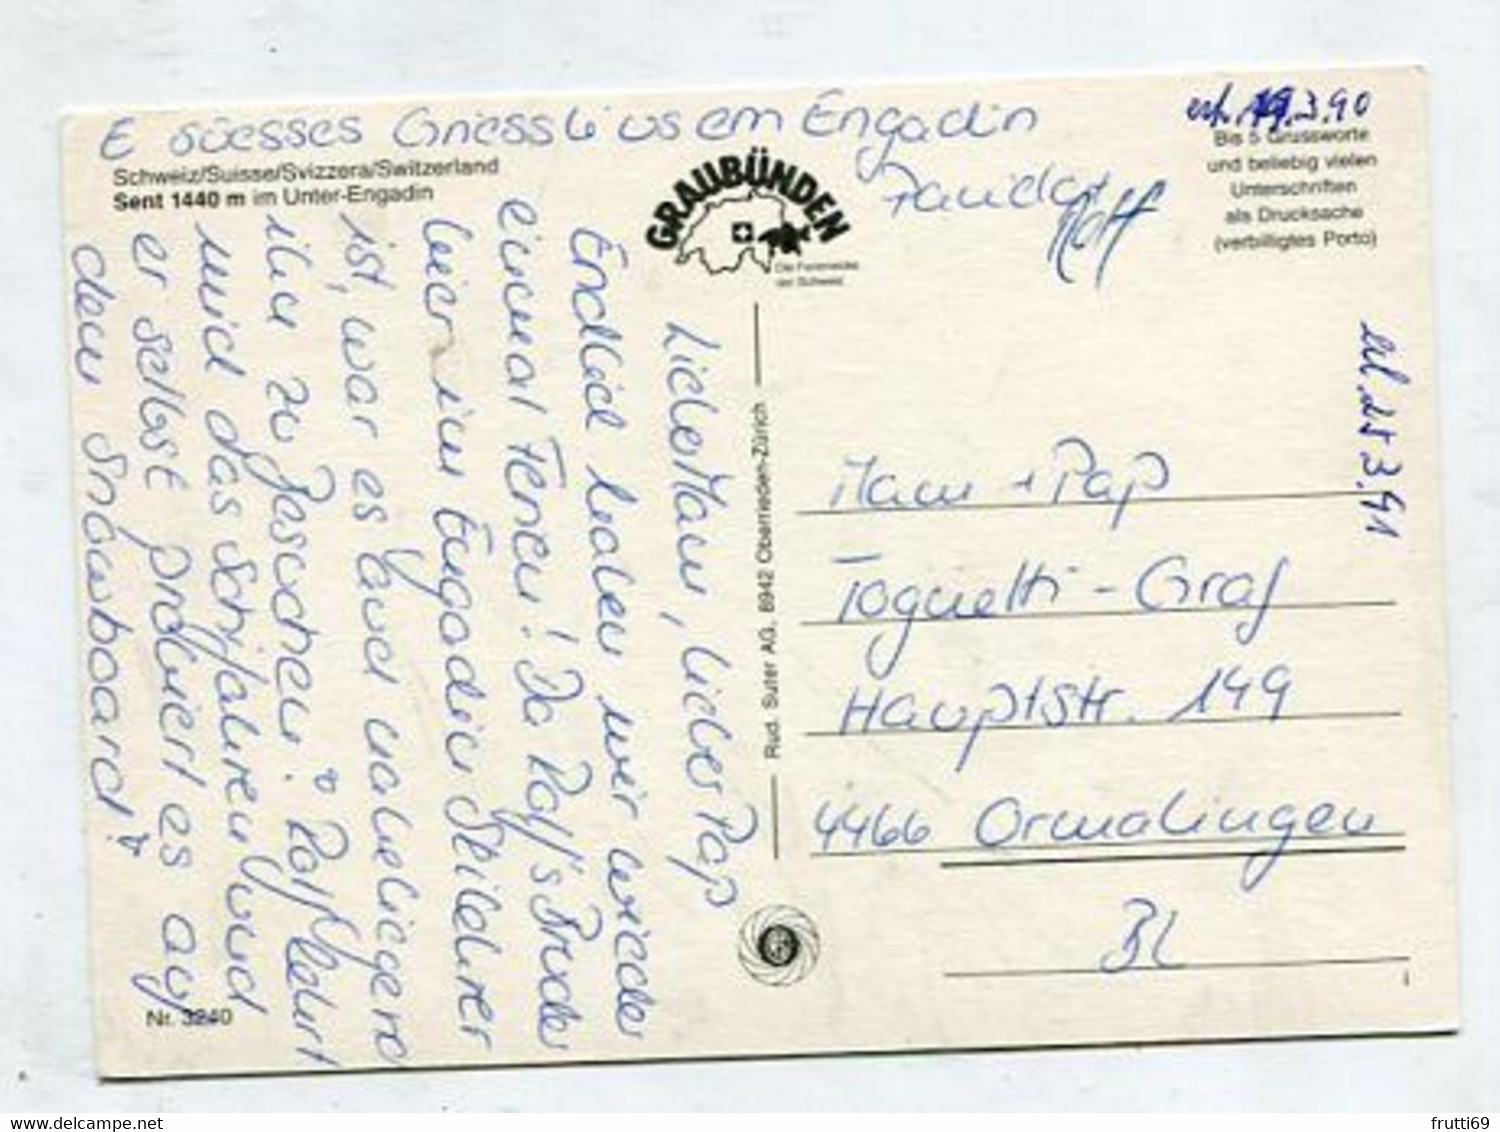 E süesses Griessli us em Engadin
Schweiz/Suisse/Svizzera/Switzerland
Sent 1440 m im Unter-Engadin
GRAUBÜNDEN
Die Ferienecke
der Schweiz
Rolf
19.3.90
Bis 5 Grussworte
und beliebig vielen
Unterschriften
als Drucksache
(verbilligtes Porto)
Liebe Mam, lieber Pap
Endlich haben wir wieder
einmal Ferien! Da Rolf's Bruder
hier im Engadin Skilehrer
ist, war es auch naheliegend
ihn zu besuchen. Rolf lehrt
mich das Skifahren und
er selbst probiert es auf
dem Snowboard!
Rud. Suter AG, 8942 Oberrieden-Zürich
erl. 25.3.91
Mam + Pap
Tognetti - Graf
Hauptstr. 149
4466 Ormalingen
BL
Nr. 3240
www.delcampe.net
frutti69